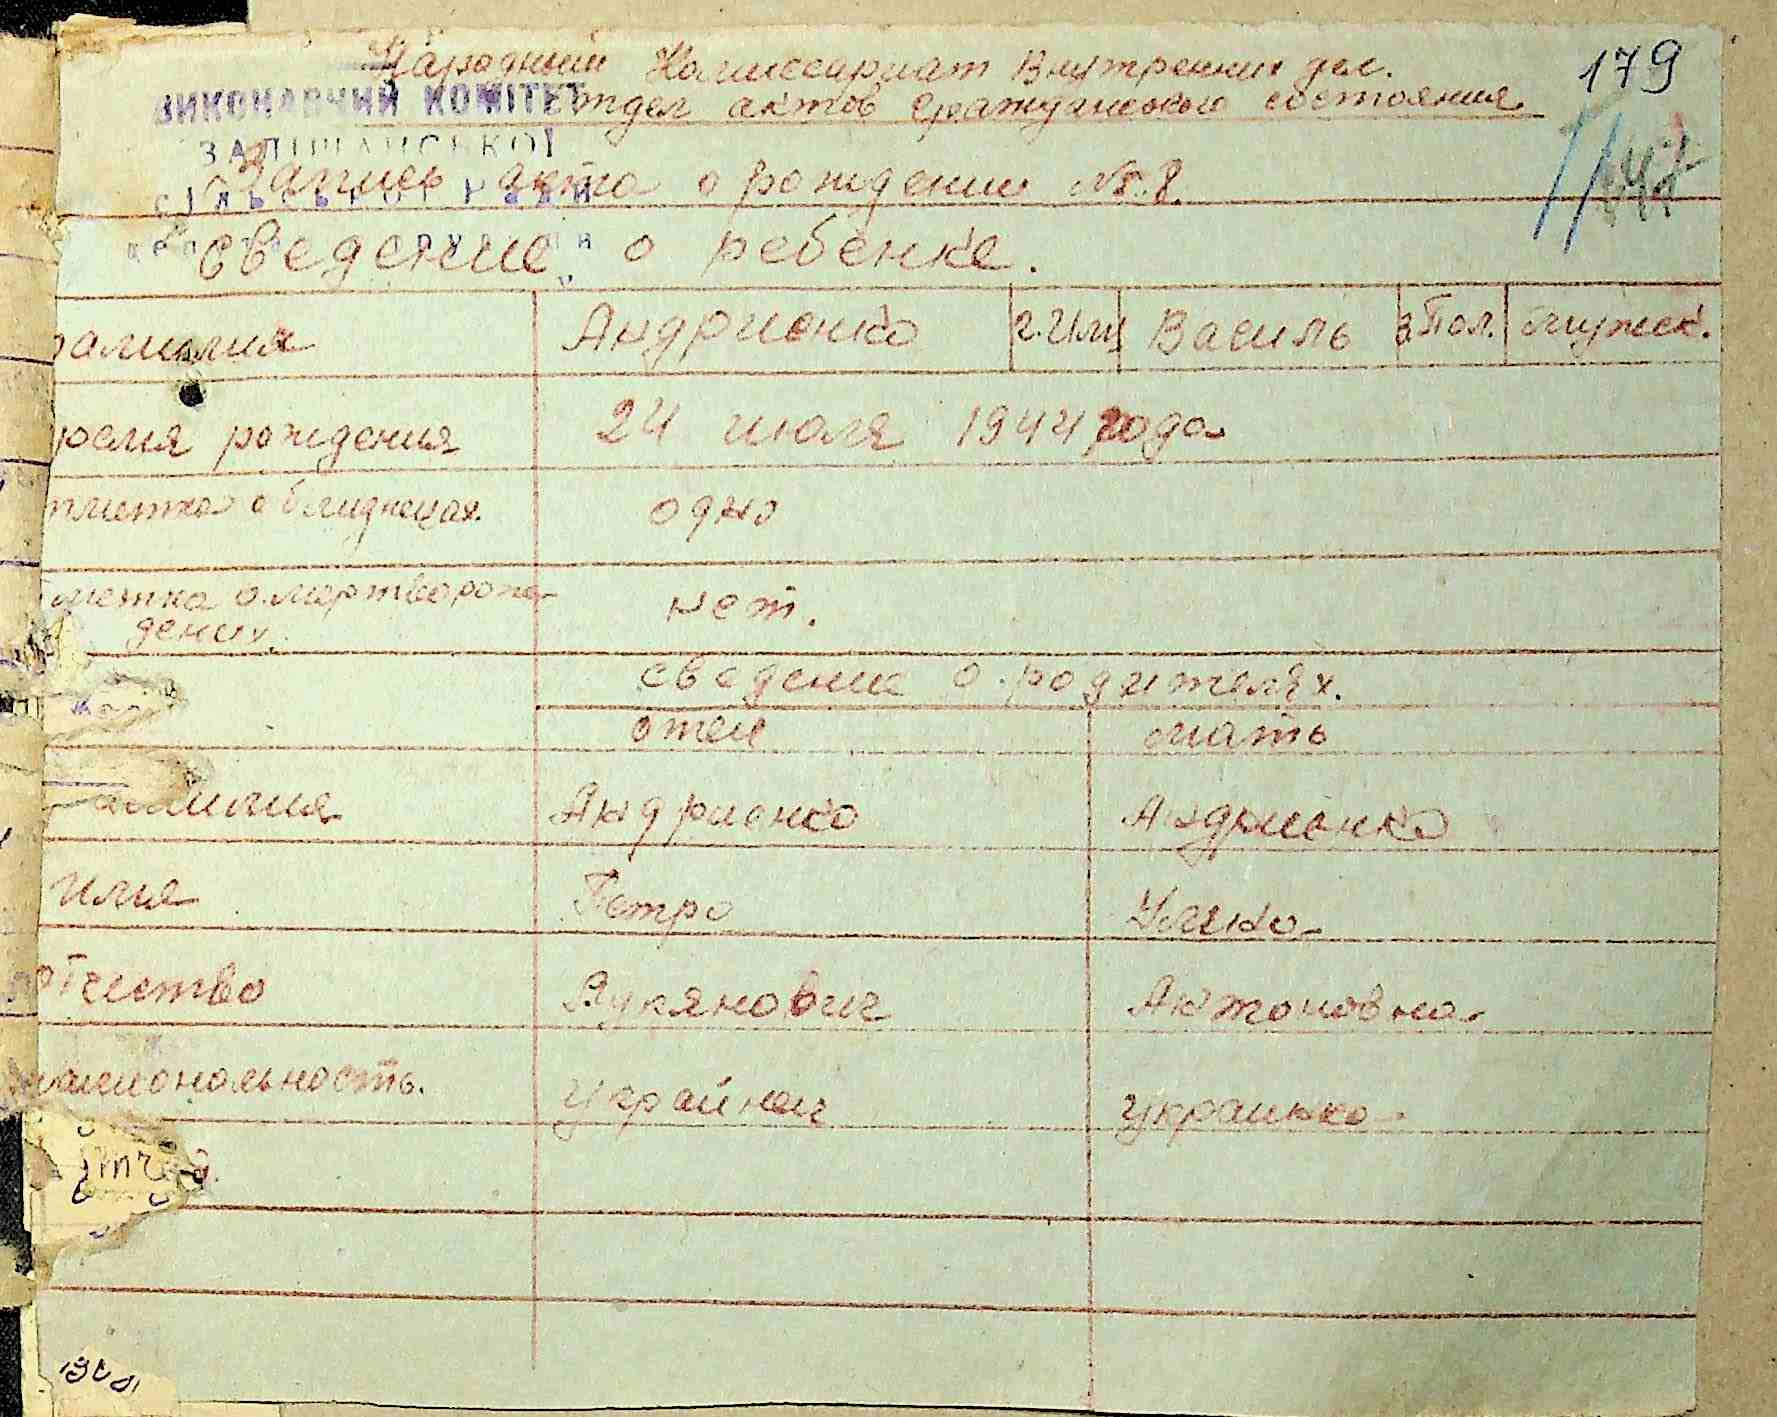 179
Народный Комиссариат Внутренних дел.
отдел актов гражданского состояния
ВИКОНАВЧИЙ КОМІТЕТ
Запись акта о рождении №. 8.
сведение о ребенке.
фамилия Андриенко 2. Имя Василь 3 Пол. мужск.
время рождения 24 июля 1944 года
отметка о близнецах. одно
отметка о мертворож-
дении. нет.
сведение о родителях.
отец мать
фамилия Андриенко Андриенко
имя Петро
отчество Лукянович Антоновна
национальность. Украйнец Украинка